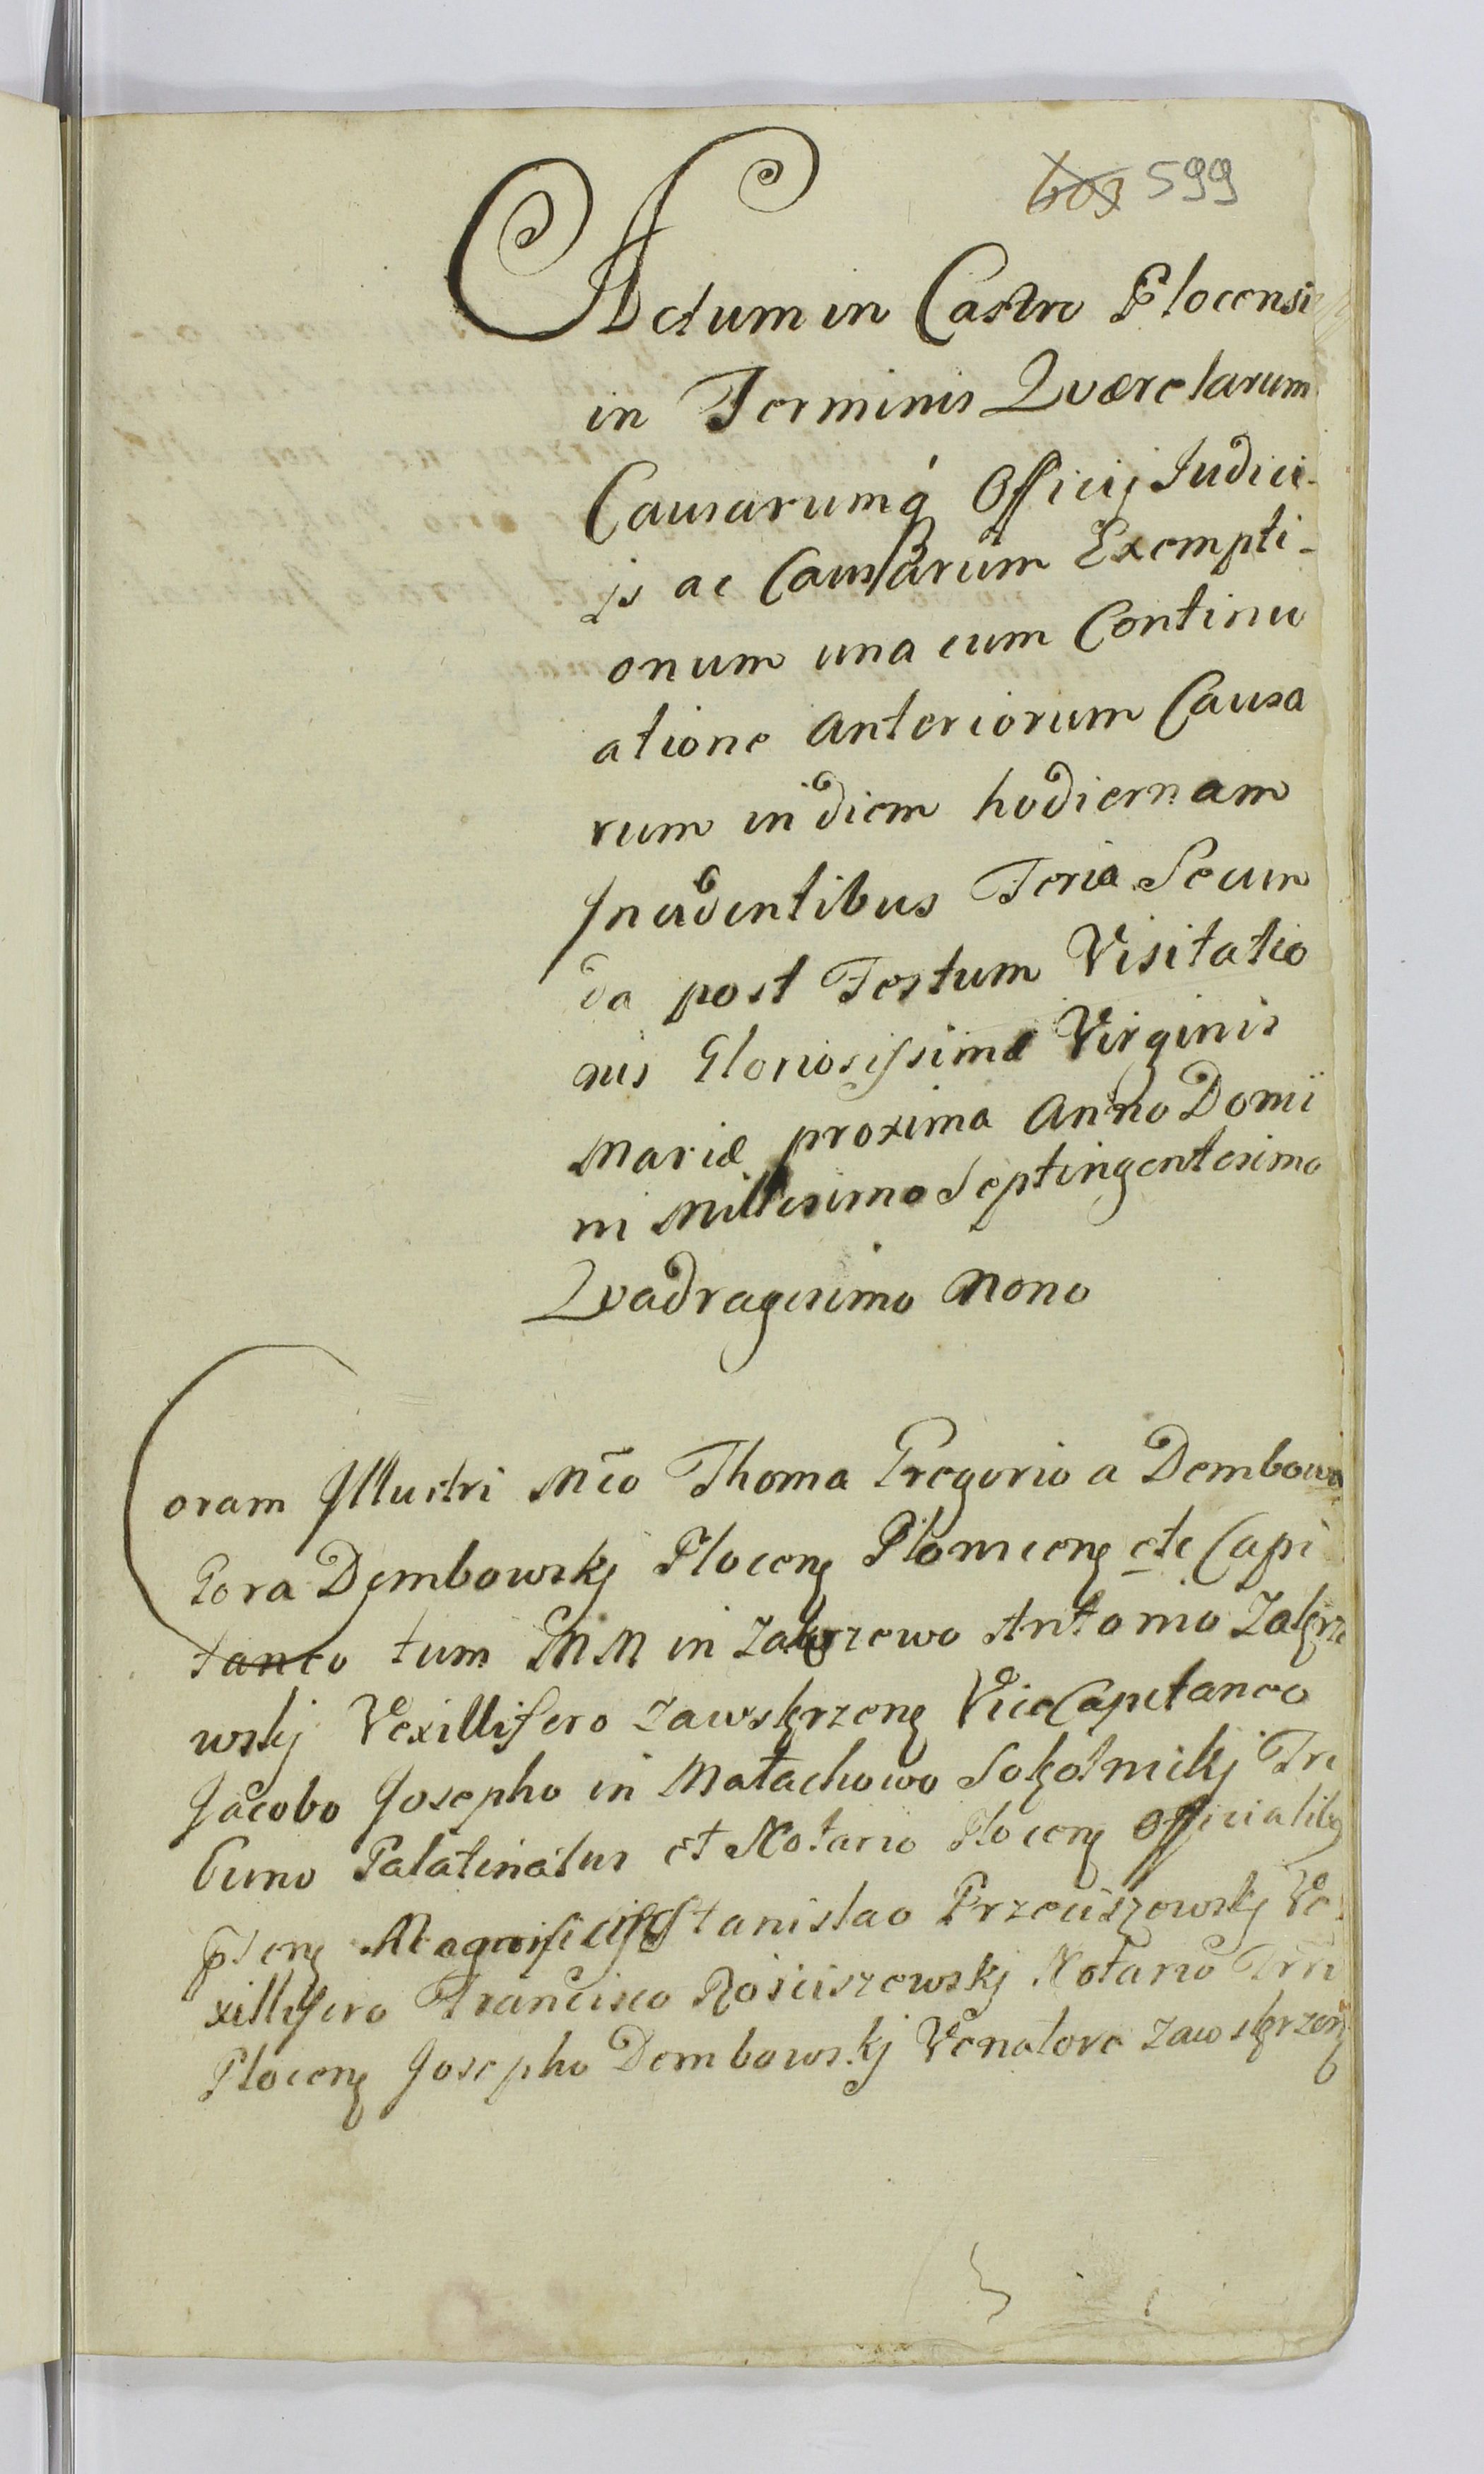 603 599
Actum in Castro Plocensi
in Terminis Qværelarum
Causarumq́ Officij Judici-
js ac Causarum Exempti-
onum una cum Continu
atione Anteriorum Causa
rum in diem hodiernam
Incidentibus Feria Secun
da post Festum Visitatio
nis Gloriosissimæ Virginis
Mariæ proxima Anno Domi
ni Millesimo Septingentesimo
Qvadragesimo Nono
Coram Illustri Mco Thoma Gregorio a Dembowa
Gora Dembowskj Plocenę Plonscenę etc Capi
taneo tum MM in Zakrzewo Antonio Zakrze
wskj Vexillifero Zawskrzenę ViceCapitaneo
Jacobo Josepho in Małachowo Sokolnickj Tri
buno Palatinatus et Notario Plocenę Officialibą
Magnificisq Stanislao Przeciszewskj Ve
xillifero Francisco Rościszewskj Notario Trri
Plocenę Josepho Dembowskj Venatore Zawskrzenę